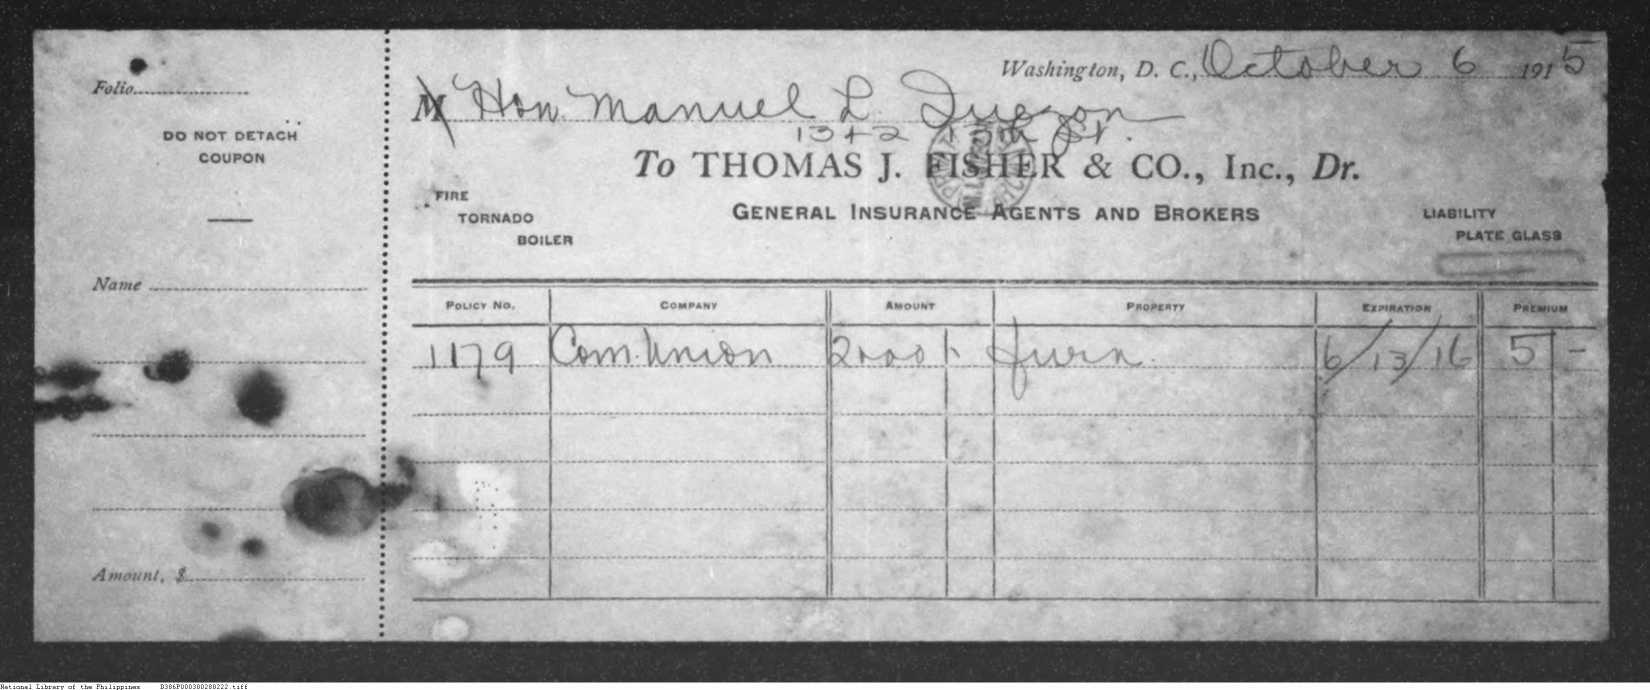 Folio
DO NOT DETACH
COUPON
Name
Amount, $
Washington, D. C., October 6 1915
M Hon. Manuel L. Quezon
1342 13th St.
To THOMAS J. FISHER & CO., Inc., Dr.
GENERAL INSURANCE AGENTS AND BROKERS
FIRE
TORNADO
BOILER
LIABILITY
PLATE GLASS
POLICY NO. COMPANY AMOUNT PROPERTY EXPIRATION PREMIUM
1179 Com. Union 2000 Furn. 6/13/16 5 -
National Library of the Philippines B386P000300280222.tiff